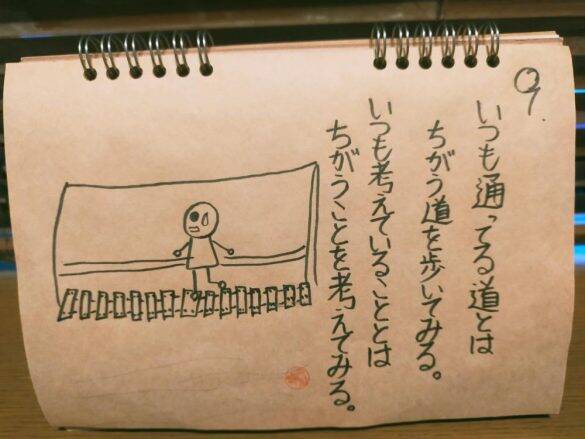 Q7.
いつも通ってる道とは
ちがう道を歩いてみる。
いつも考えていることとは
ちがうことを考えてみる。